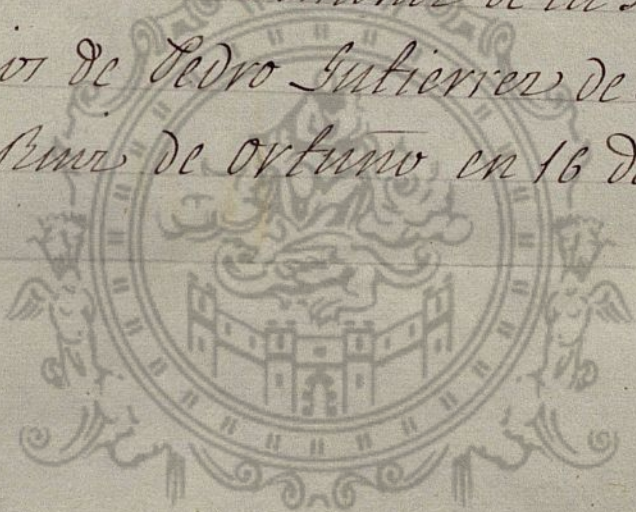 de la
de Pedro Gutierrez de
Ruiz de Ortuño en 16 de